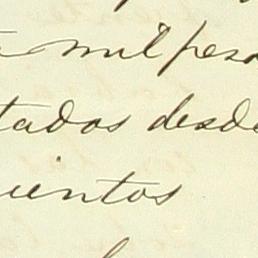 mil peso
tados desde
cientos